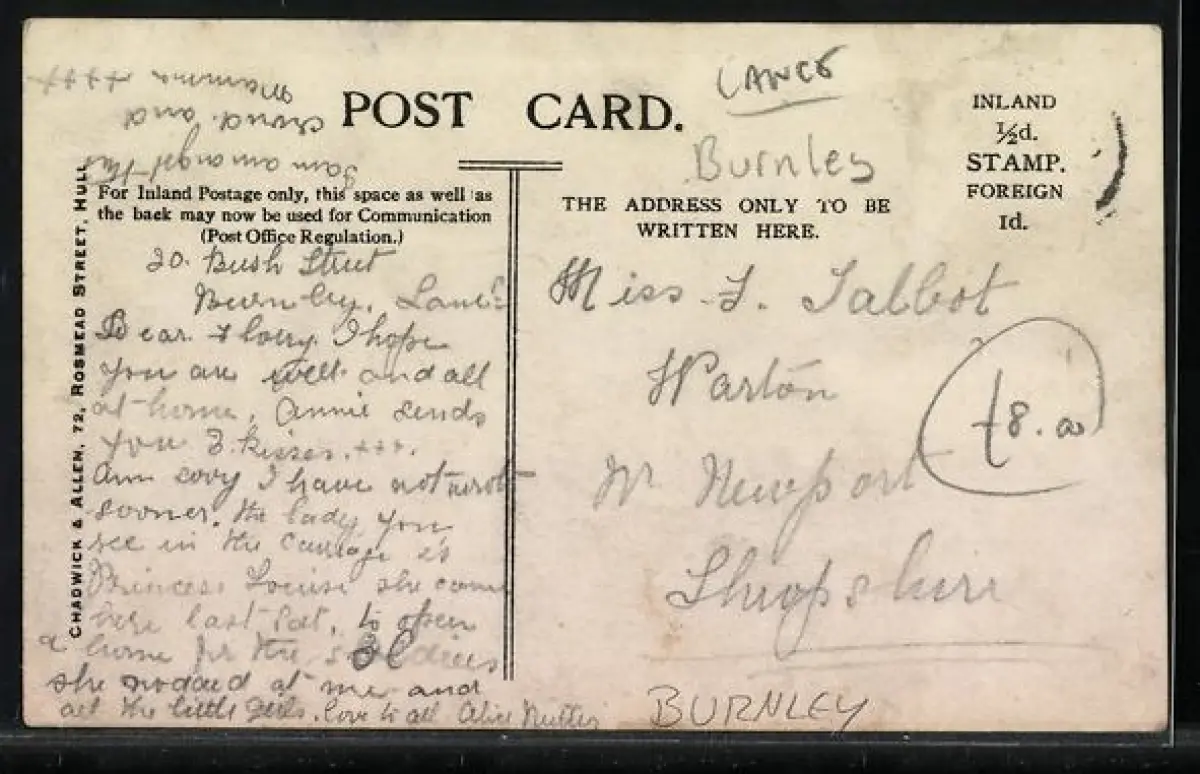 LANCS
Burnley
POST CARD.
INLAND
½d.
STAMP.
FOREIGN
1d.
For Inland Postage only, this space as well as
the back may now be used for Communication
(Post Office Regulation.)
THE ADDRESS ONLY TO BE
WRITTEN HERE.
CHADWICK & ALLEN, 72, ROSMEAD STREET, HULL
20. Bush Street
Burnley, Lancs
Dear Florry. I hope
you are well and all
at home, Annie sends
you 3 kisses. +++.
Am sory I have not wrote
sooner. the lady you
see in the carrage is
Princess Louise she come
here last Sat. to open
a home for the soldiers
she nodded at me and
all the little girls. love to all Alice
I am amongst the
crowd and
Mamma +++
Miss F. Talbot
Warton
Nr Newport
Shropshire
£8.00
BURNLEY